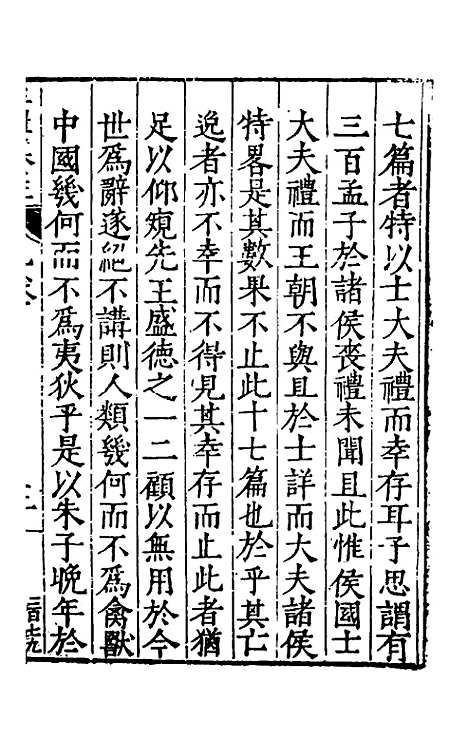 七篇者特以士大夫禮而幸存耳子思謂有
三百孟子於諸侯喪禮未聞且此惟侯國士
大夫禮而王朝不與且於士詳而大夫諸侯
特畧是其數果不止此十七篇也於乎其亡
逸者亦不幸而不得見其幸存而止此者猶
足以仰窺先王盛德之一二顧以無用於今
世爲辭遂絕不講則人類幾何而不爲禽獸
中國幾何而不爲夷狄乎是以朱子晚年於